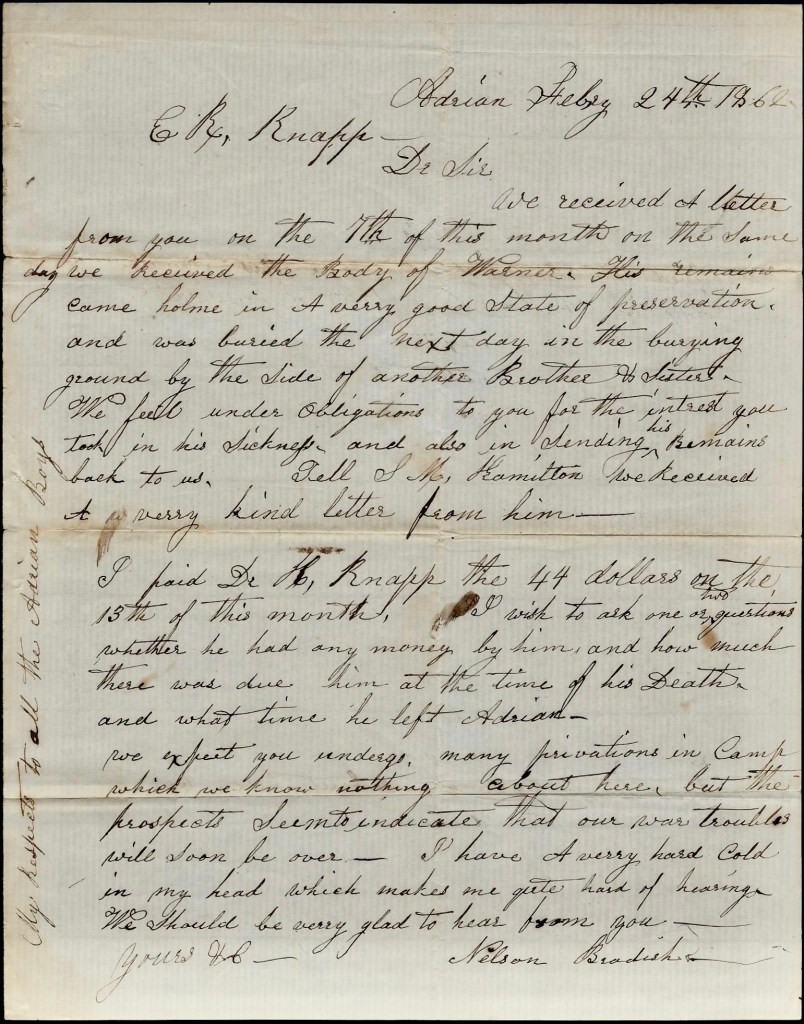 Adrian Febry 24th 1862
E R, Knapp—
Dr Sir
We received A letter
from you on the 7th of this month on the same
day we received the Body of Warner. His remains
came holme in A verry good State of preservation.
and was buried the next day in the burying
ground by the Side of another Brother & Sister.
We feel under obligations to you for the intrest you
took in his Sickness. and also in Sending his Remains
back to us. Tell S M, Hamilton we Received
A verry kind letter from him—
I paid Dr H, Knapp the 44 dollars on the
13th of this month. I wish to ask one or two questions
whether he had any money by him, and how much
there was due him at the time of his Death.
and what time he left Adrian—
we expect you undergo, many privations in Camp
which we know nothing about here, but the
prospects Seem to indicate that our war troubles
will soon be over— I have A verry hard Cold
in my head which makes me quite hard of hearing.
We Should be verry glad to hear from you—
Yours &C— Nelson Bradish.
My Respects to all the Adrian Boys